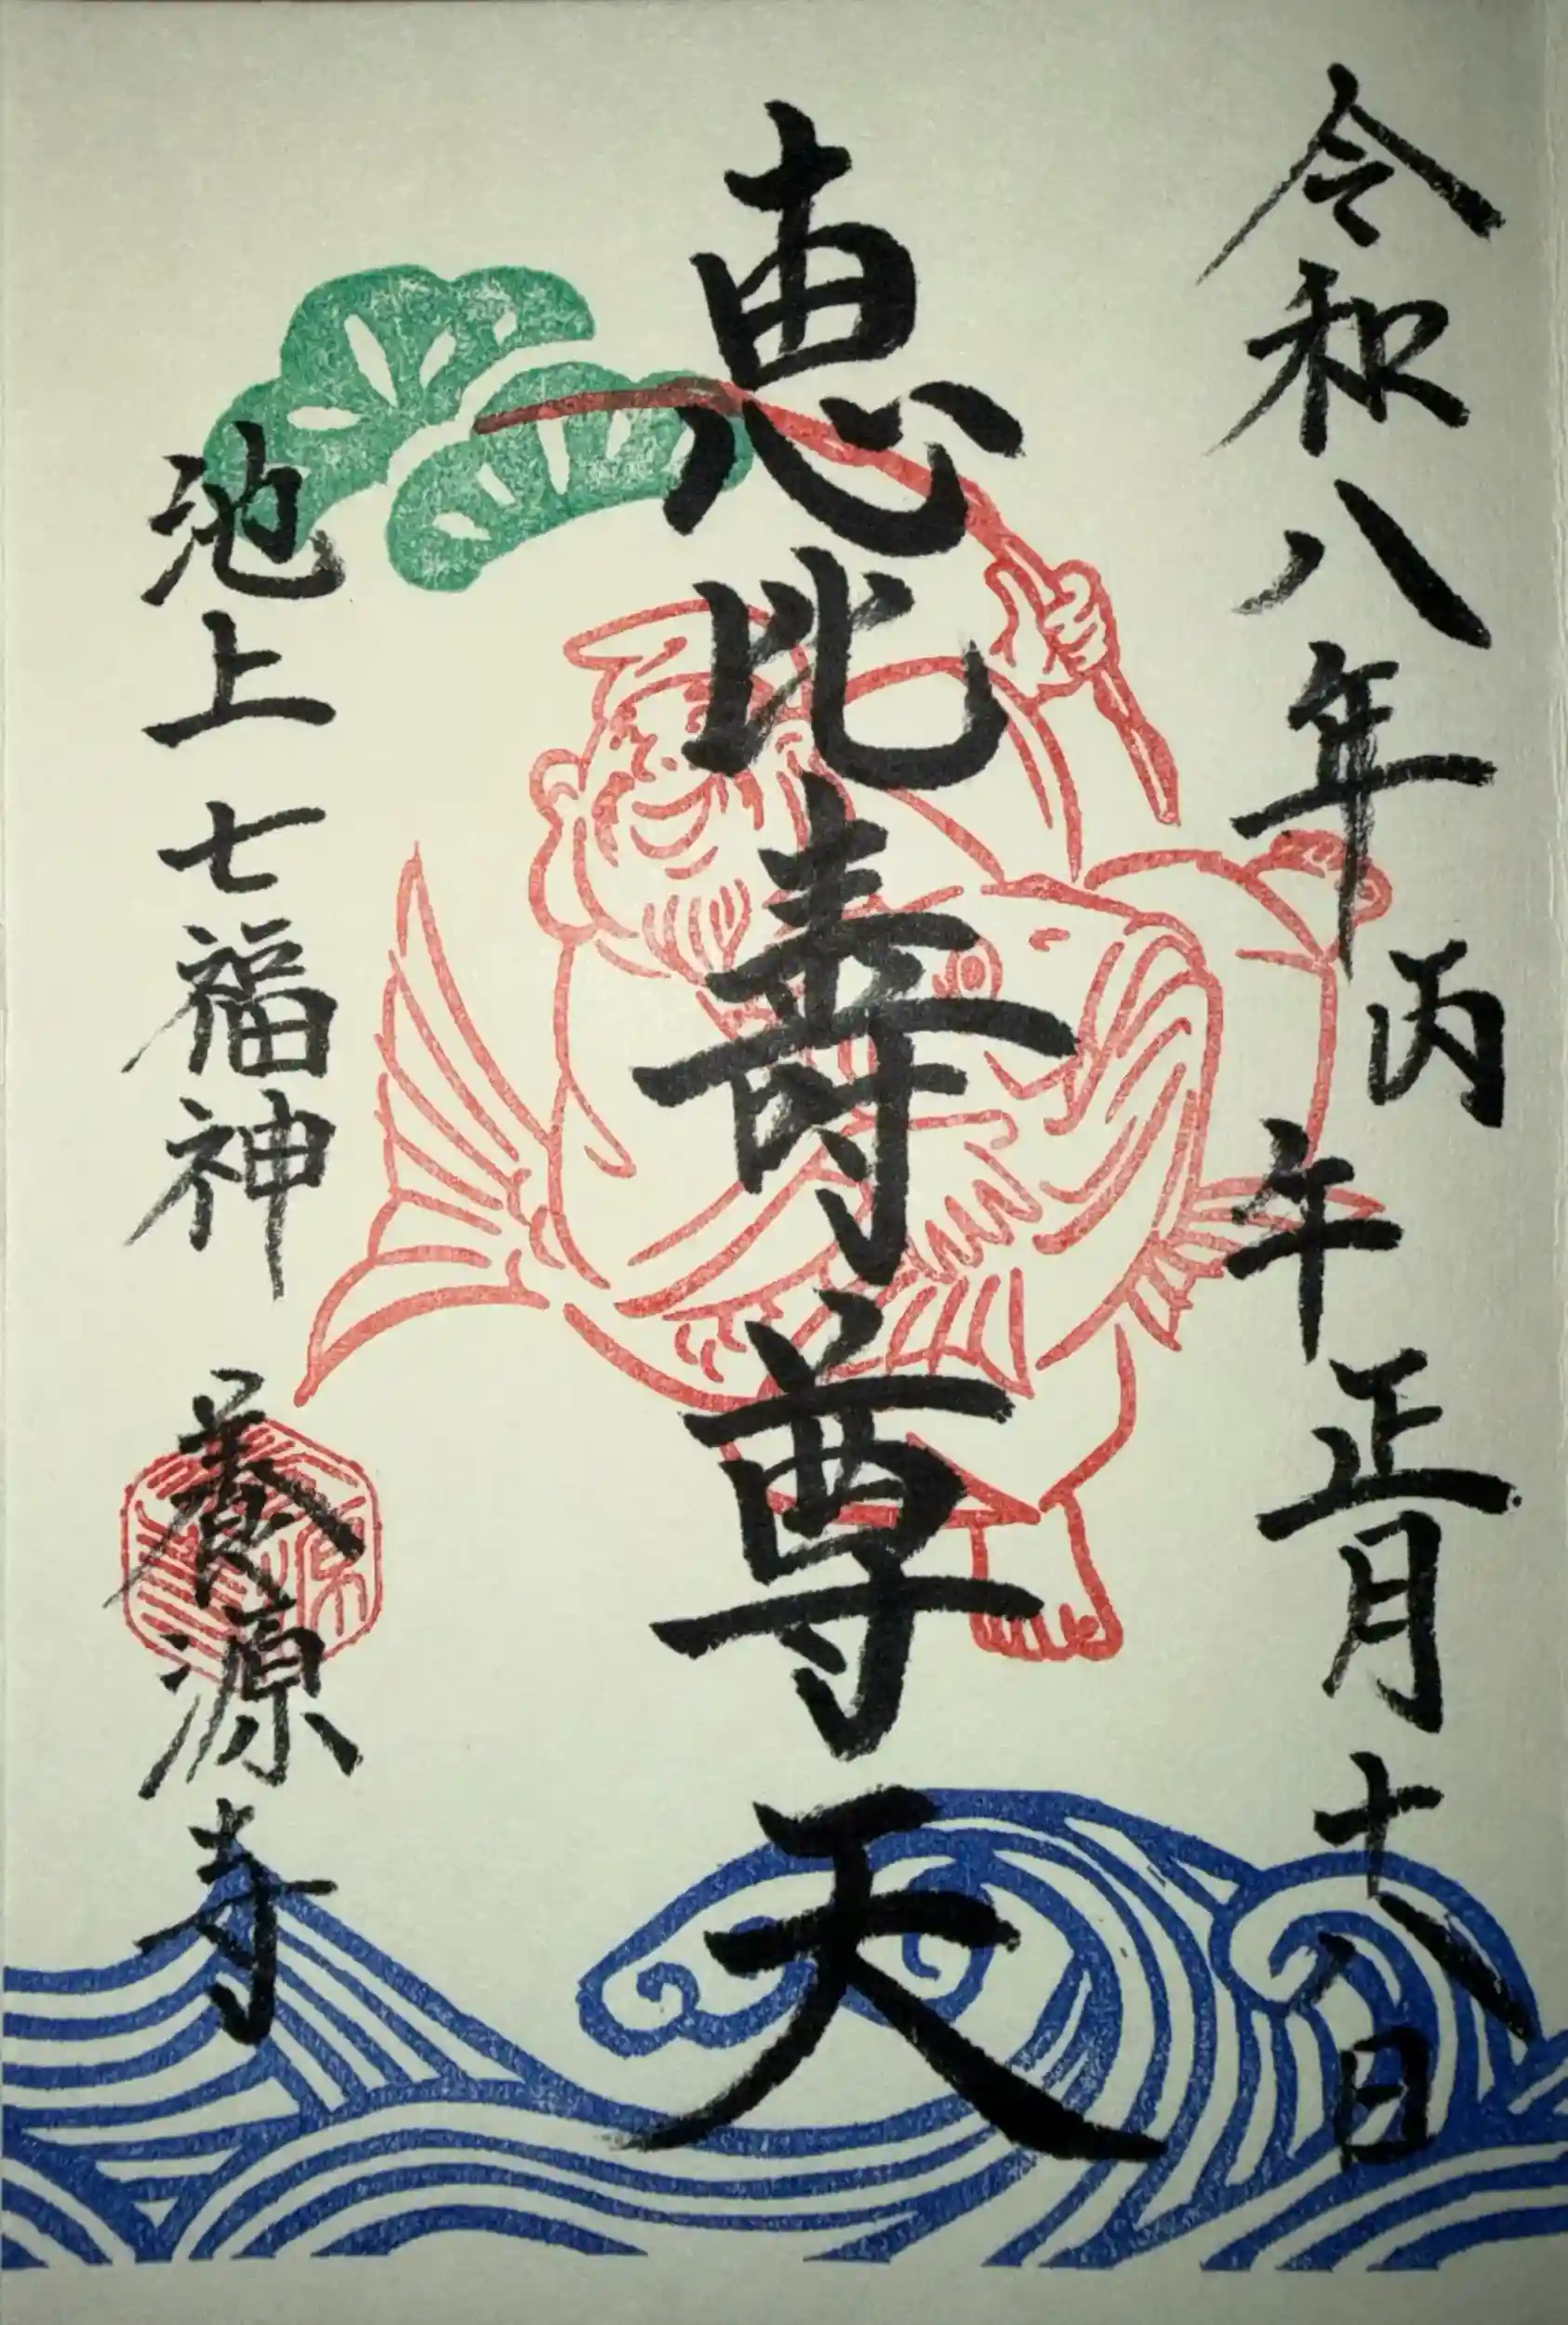 令和八年丙午正月十八日
恵比寿尊天
池上七福神 養源寺